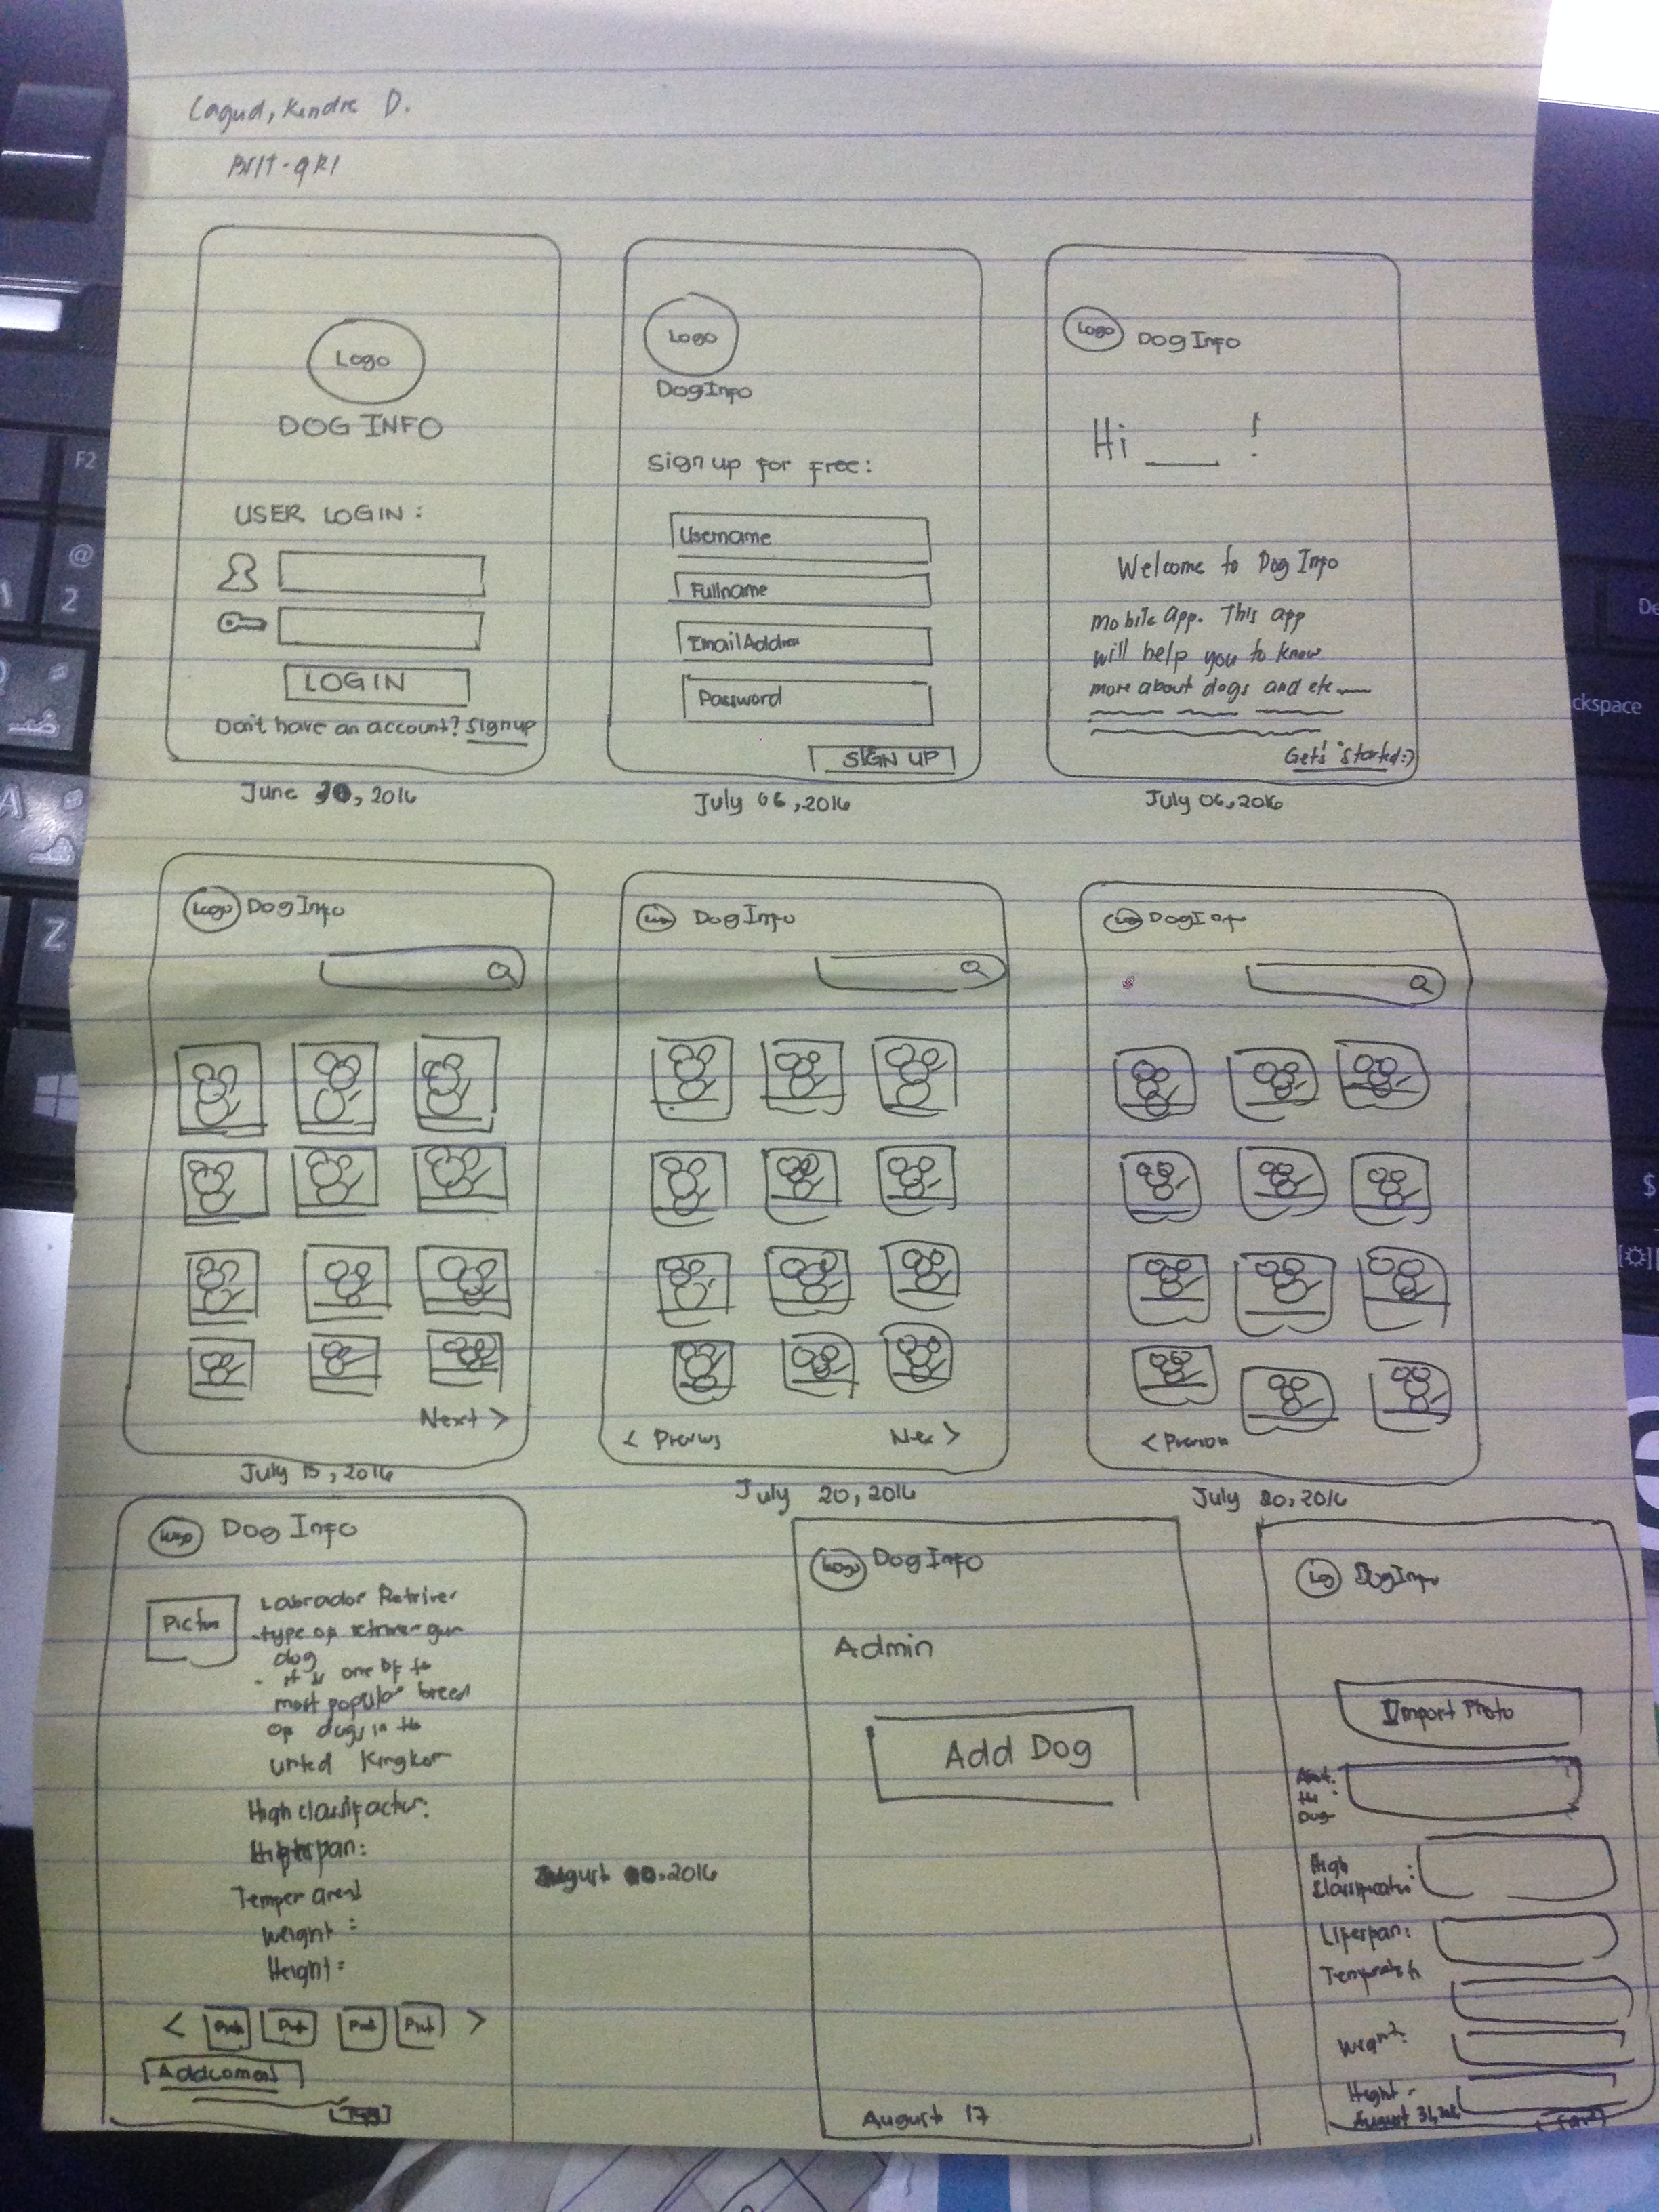 Lagud, Kendre D.
Logo
DOG INFO
USER LOGIN :
LOGIN
Don't have an account? Signup
June 30, 2016
Logo
DogInfo
Sign up for Free :
Username
Fullname
Email Address
Password
SIGN UP
July 06, 2016
Logo Dog Info
Hi ___ !
Welcome to Dog Info
mobile app. This app
will help you to know
more about dogs and etc
Get's Started :)
July 06, 2016
Logo Dog Info
Next >
July 13, 2016
Logo Dog Info
< Previus
Nex >
July 20, 2016
Logo Dog Info
< Previou
July 20, 2016
Logo Dog Info
Picture
Labrador Retriver
- type of retriver gun
dog
- It is one of the
most popular breed
of dogs in the
United Kingdom
High classifaction:
span:
Temperament
Weight :
Height :
< Pict Pict Pict Pict >
Add coment
August 2016
Logo Dog Info
Admin
Add Dog
August 17
Log Dog Info
Import Photo
About
the
Dog
High
Classification :
Lifespan :
Weight :
Height -
August 31, 2016